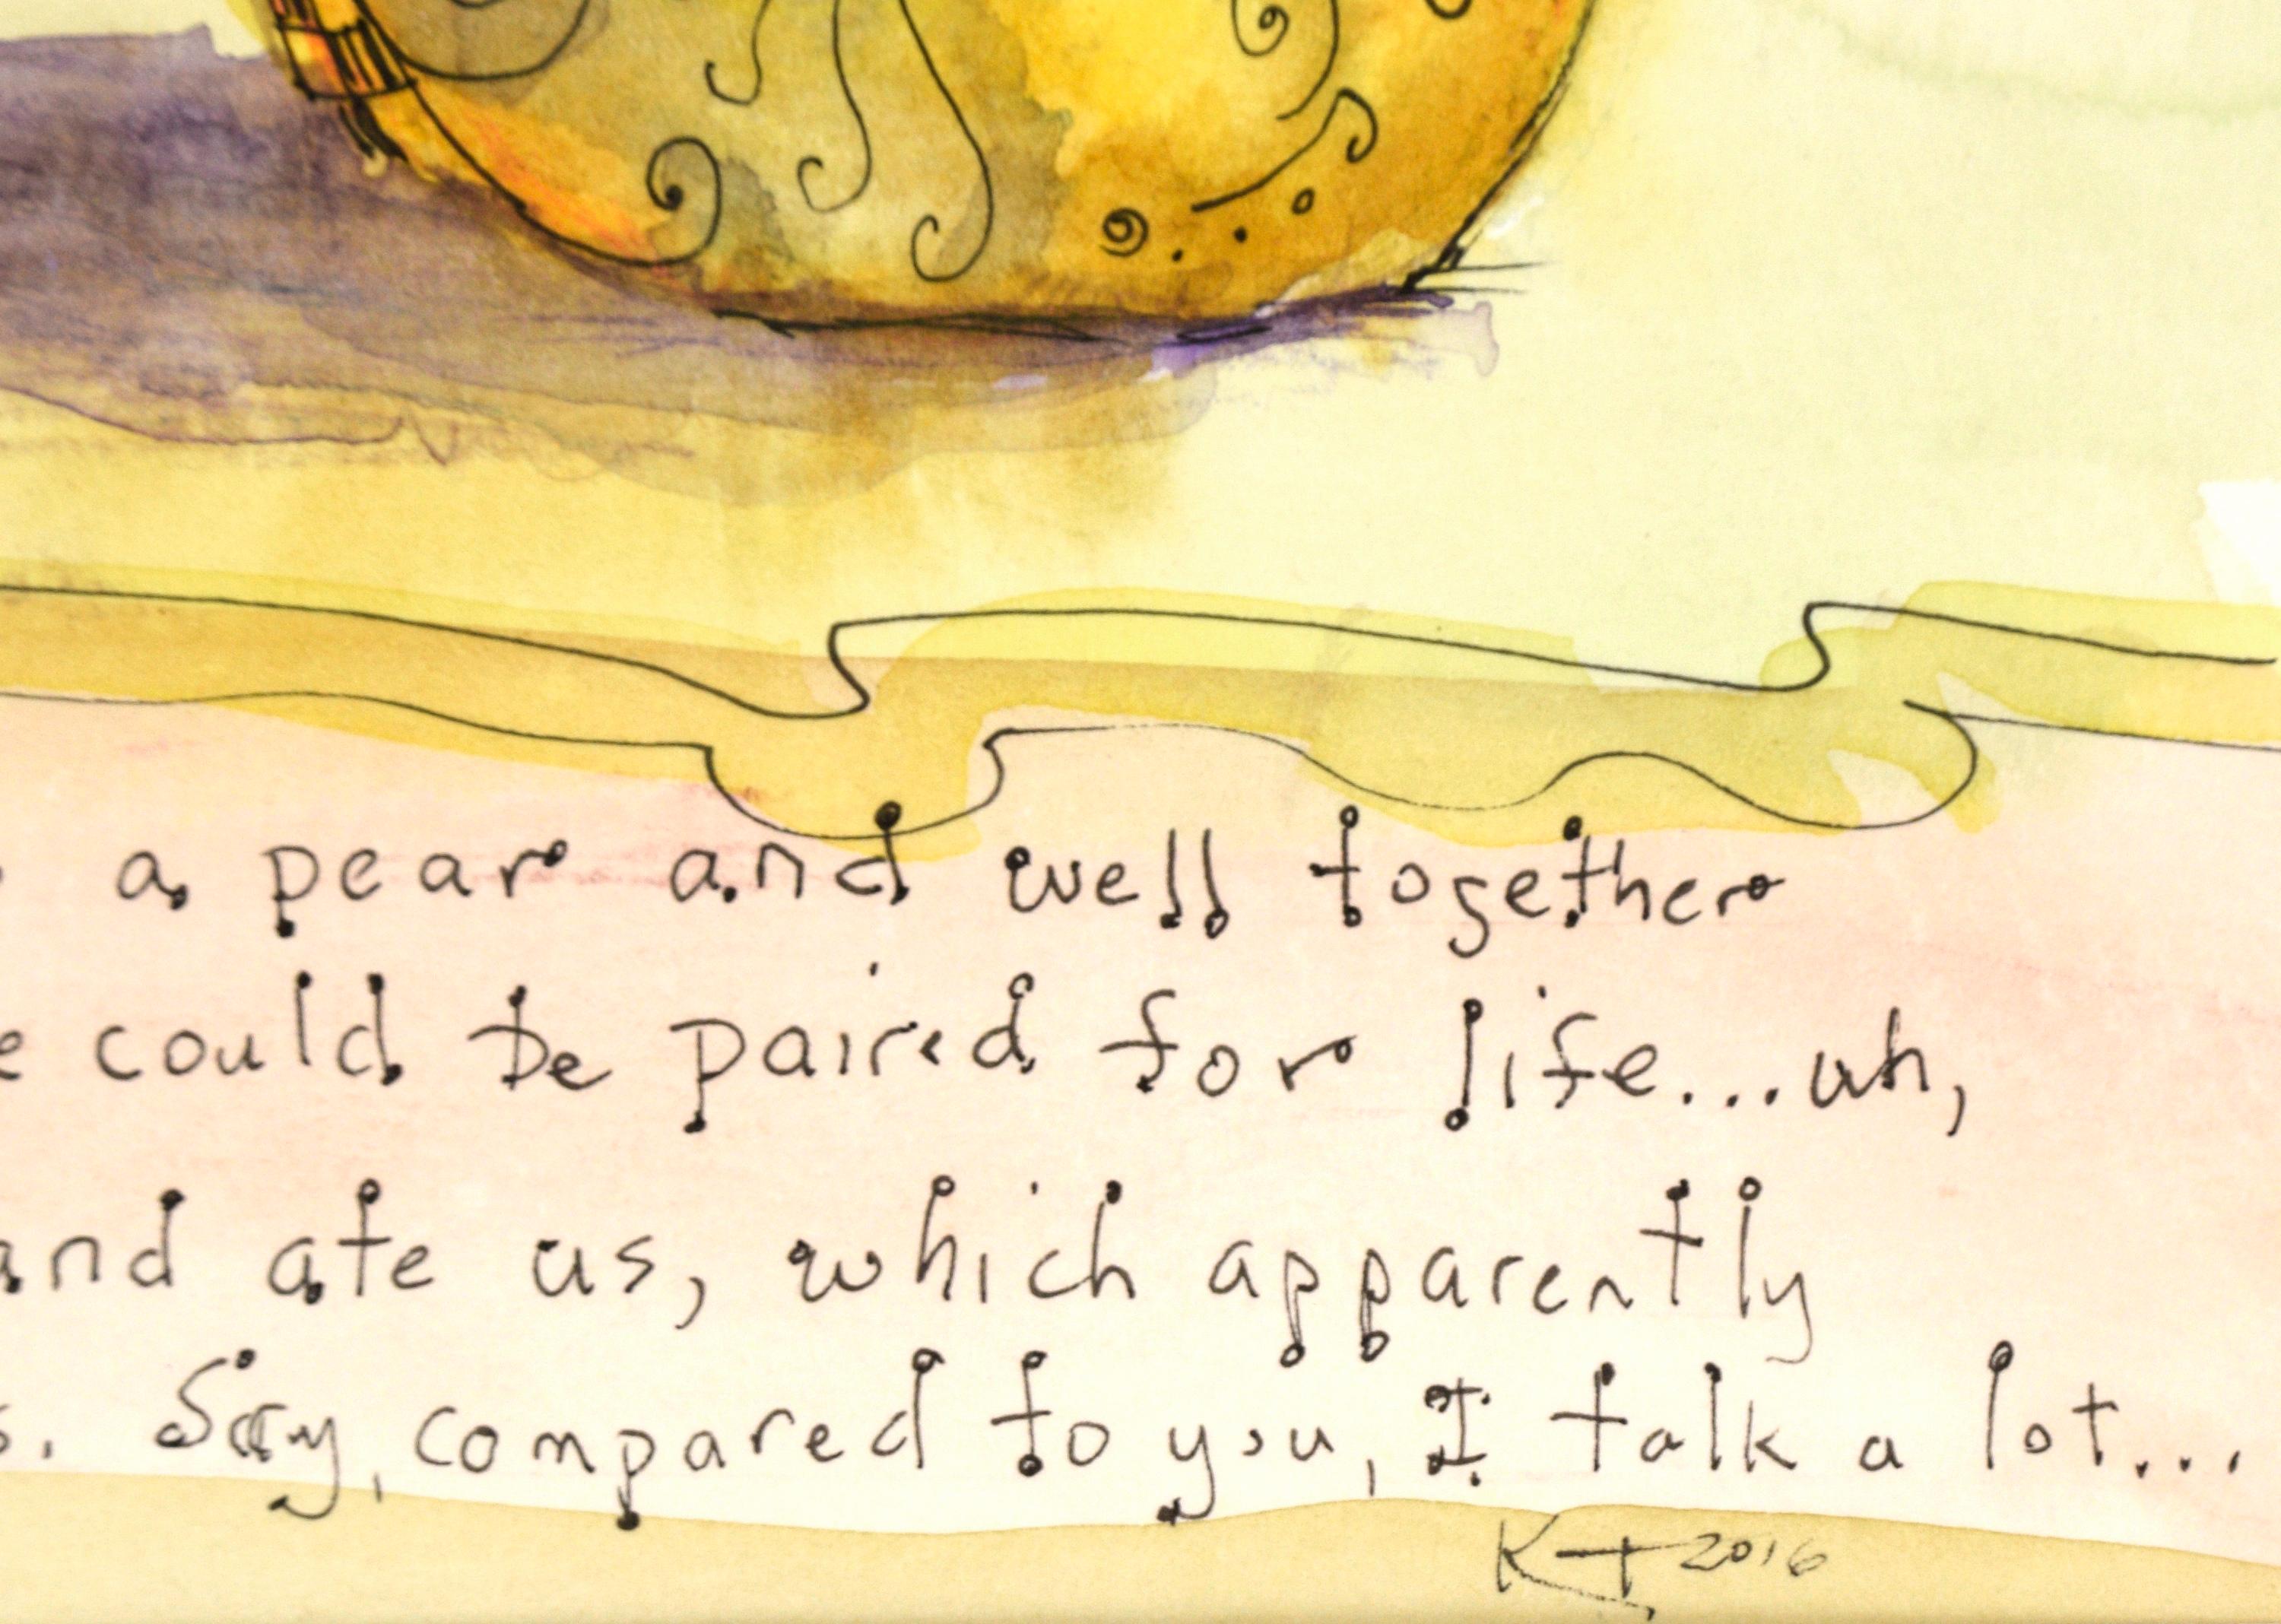 a pear and well together
e could be paired for life...uh,
and ate us, which apparently
s. Say, compared to you, I talk a lot...
KT 2016